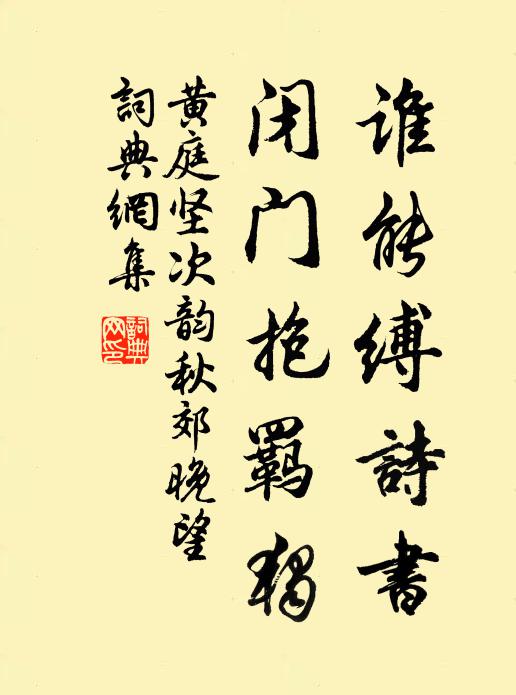 谁能缚詩書
闭门抱羁独
黄庭坚次韵秋郊晚望
詞典網集
詞典网印